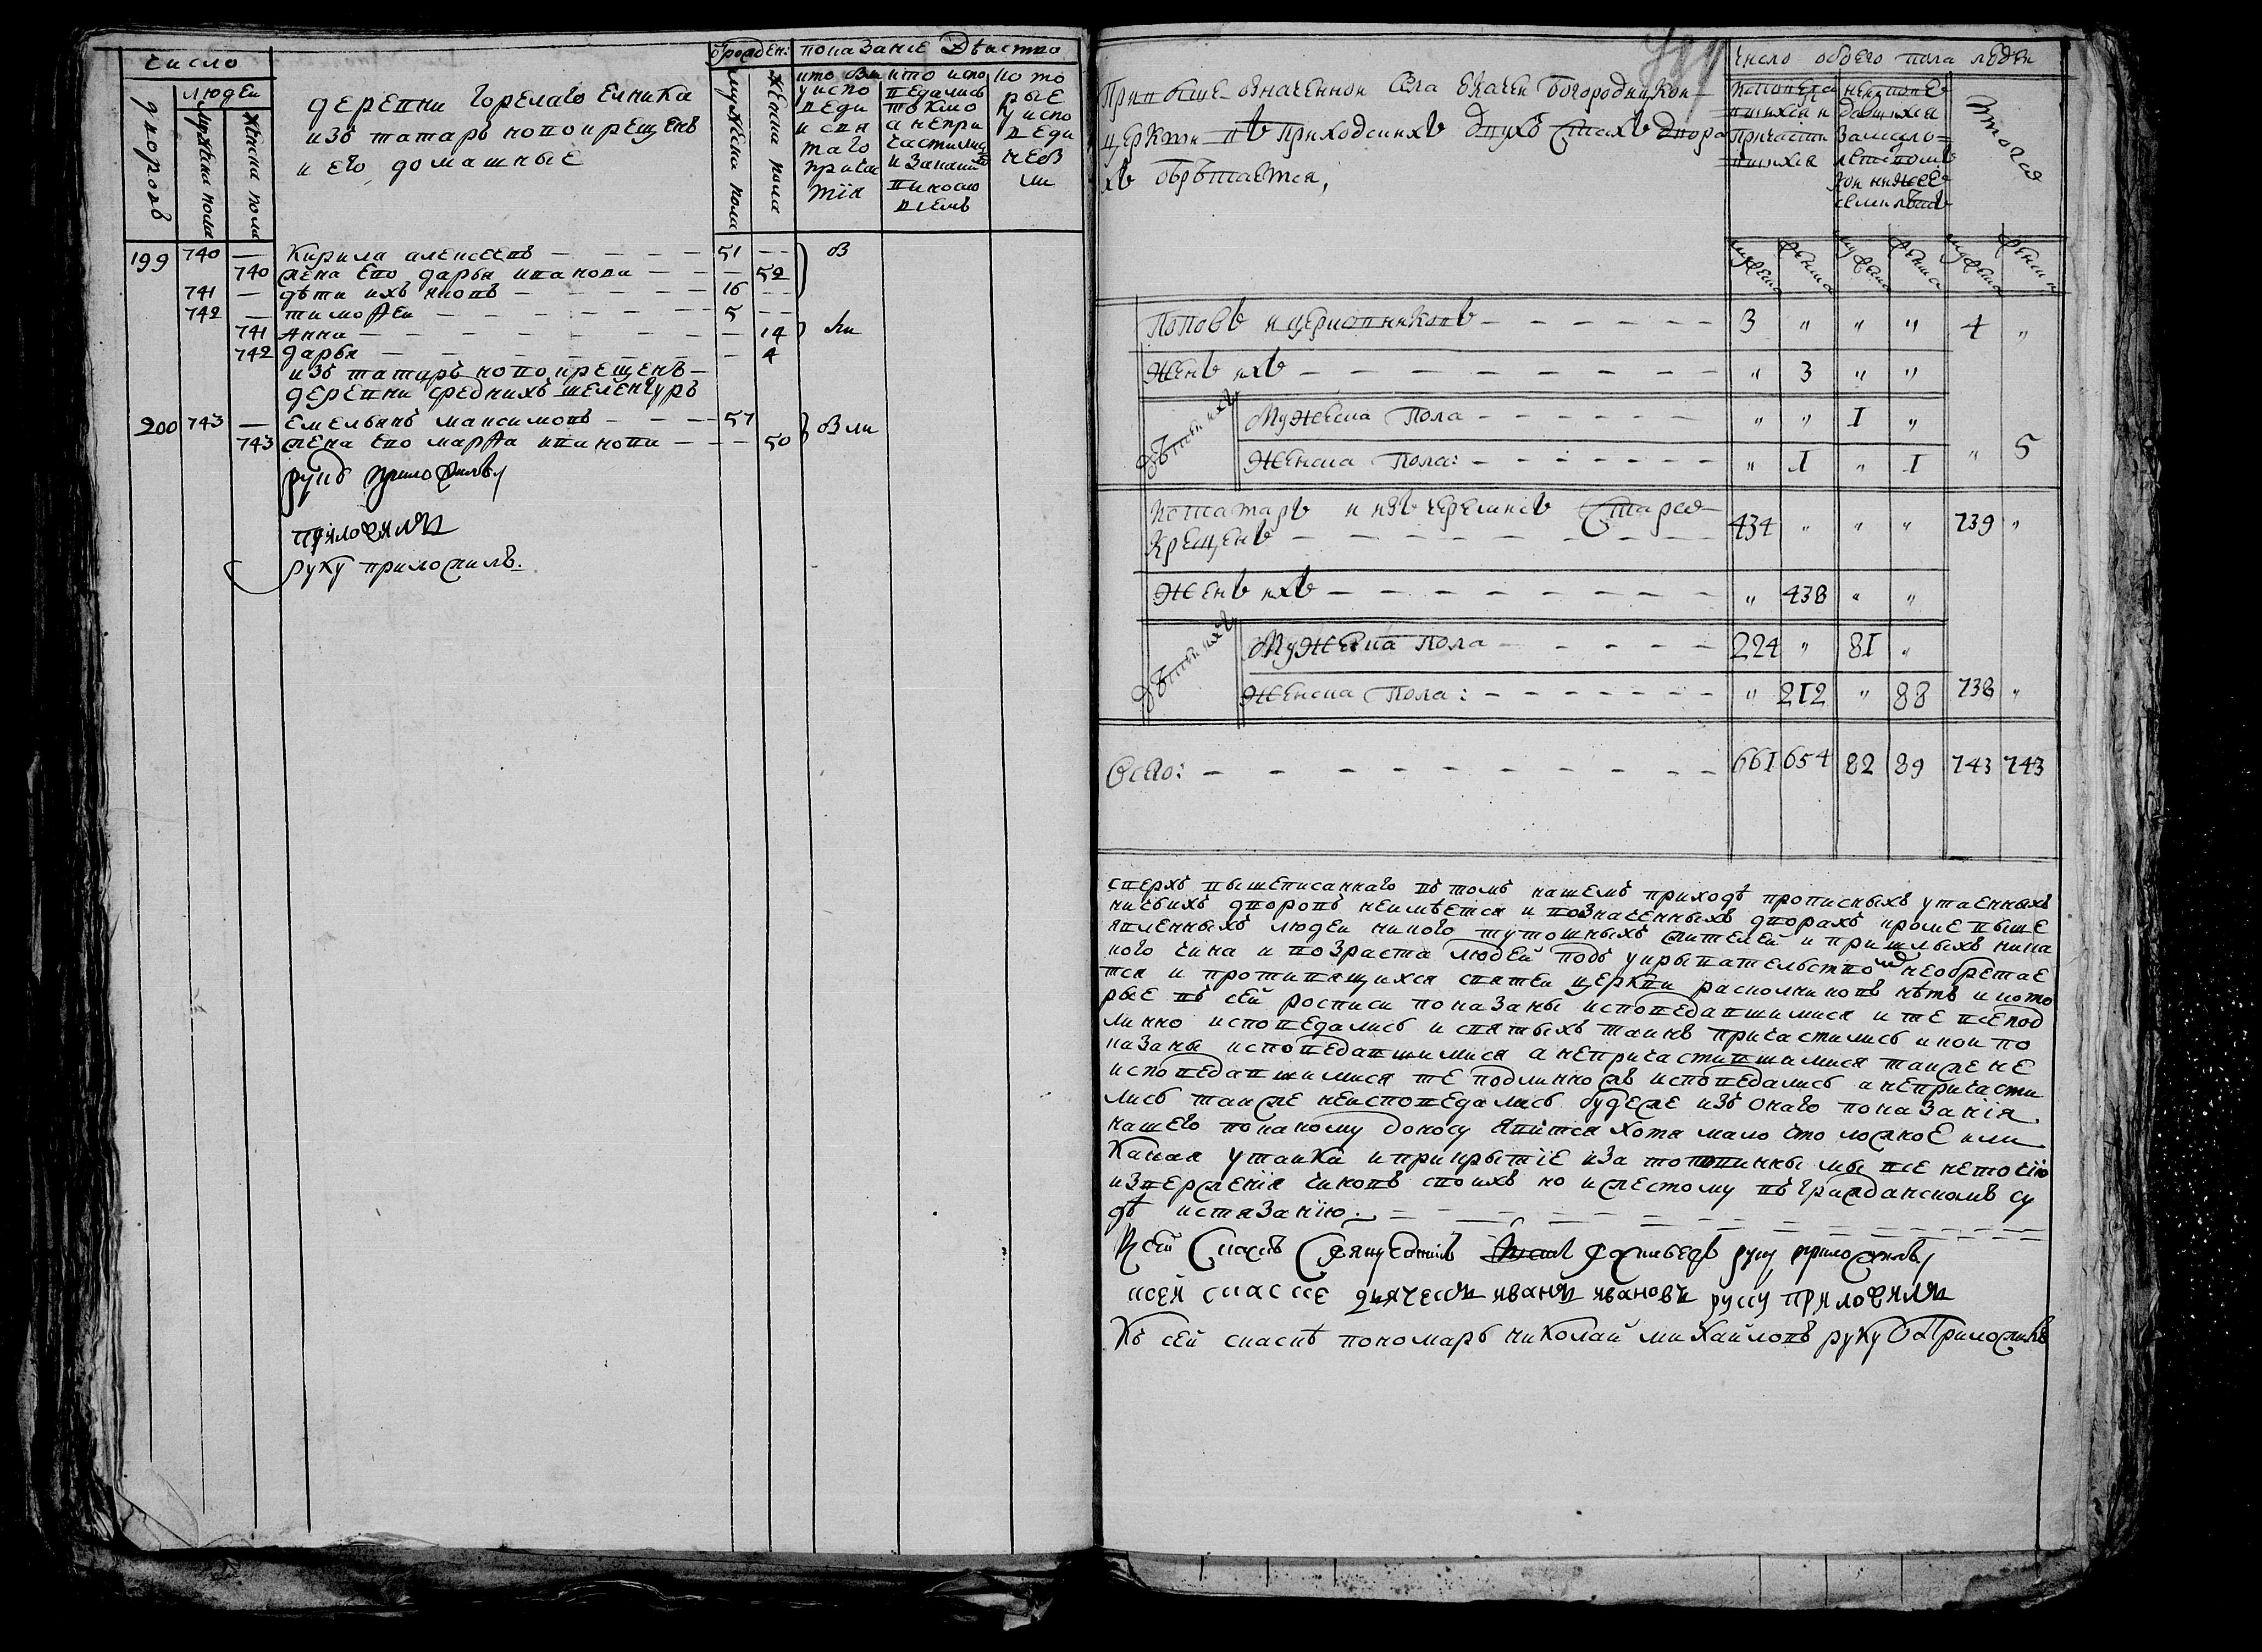 число
людеи
дворовъ
мужеска пола
женска пола
деревни Горелаго елника
изъ татаръ новокрещенъ
и его домашные
мужеска пола
женска пола
показание действо
кто былъ
у испо
веди
и свя
таго
прича
тїя
кто испо
ведались
токмо
а непри
частились
и за каки
виною
которые
у испо
веди
небы
ли
199 740 — Кирила алексеевъ — 51 — бы
740 жена его дарья иванова — 52
741 — дѣти ихъ — 16 —
742 — тимофеи — 5 — ли
741 Анна — 14
742 дарья — 4
изъ татаръ новокрещенъ
деревни среднихъ шеленгуръ
200 743 — Емельянъ максимовъ — 57 были
743 жена его марфа иванова — 50
руку приложилъ
приложилъ
руку приложилъ.
При выше означеннои села богородицкои
церкви въ приходскихъ двухъ стахъ двора
хъ обрѣтается,
число обоего пола людеи
исповеда
вшихся и
причасти
вшихся
неиспове
давшихся
за мало
летствомъ
кои ниже
семи лѣтъ
итогож
мужеска
женска
мужеска
женска
мужеска
женска
Поповъ и церковниковъ — 3 " " " 4 "
Женъ ихъ — " 3 " "
Дѣтеи ихъ
Мужеска Пола — " " 1 "
Женска Пола: — " 1 " 1 " 5
татаръ и изъ черемисъ Старо
Крещенъ — 434 " " " 739 "
Женъ ихъ — " 438 " "
Дѣтеи ихъ
Мужеска Пола — 224 " 81 "
Женска Пола: — " 212 " 88 738 "
Всего: — 661 654 82 89 743 743
сверхъ вышеписаннаго въ томъ нашемъ приходѣ прописныхъ утаенныхъ
никакихъ дворовъ неимѣется и возначенныхъ дворахъ кроме выше
явленныхъ людеи никого тутошныхъ жителеи и пришлыхъ ника
кого чина и возраста людеи подъ укрывательствомъ необретае
тся и противящихся святеи церкви расколниковъ нѣтъ и кото
рые въ сеи росписи показаны исповедавшимися и те все под
линно исповедались и святыхъ таинъ причастились и кои по
казаны исповедавшимися а непричастившимися также не
исповедавшимися те подлинно жъ исповедались а непричасти
лись также неисповедались будеже изъ онаго показанїя
нашего покакому доносу явится хотя мало что ложное или
какая утаика и прикрытїе и за то повинны мы все неточїю
извержения чиновъ своихъ но и жестокому въ гражданскомъ су
дѣ истязанїю.
К сеи сказкѣ священникъ руку приложилъ
ксеи сказке дьячекъ иванъ ивановъ руку приложилъ
Къ сеи сказкѣ пономарь николаи михаиловъ руку приложилъ